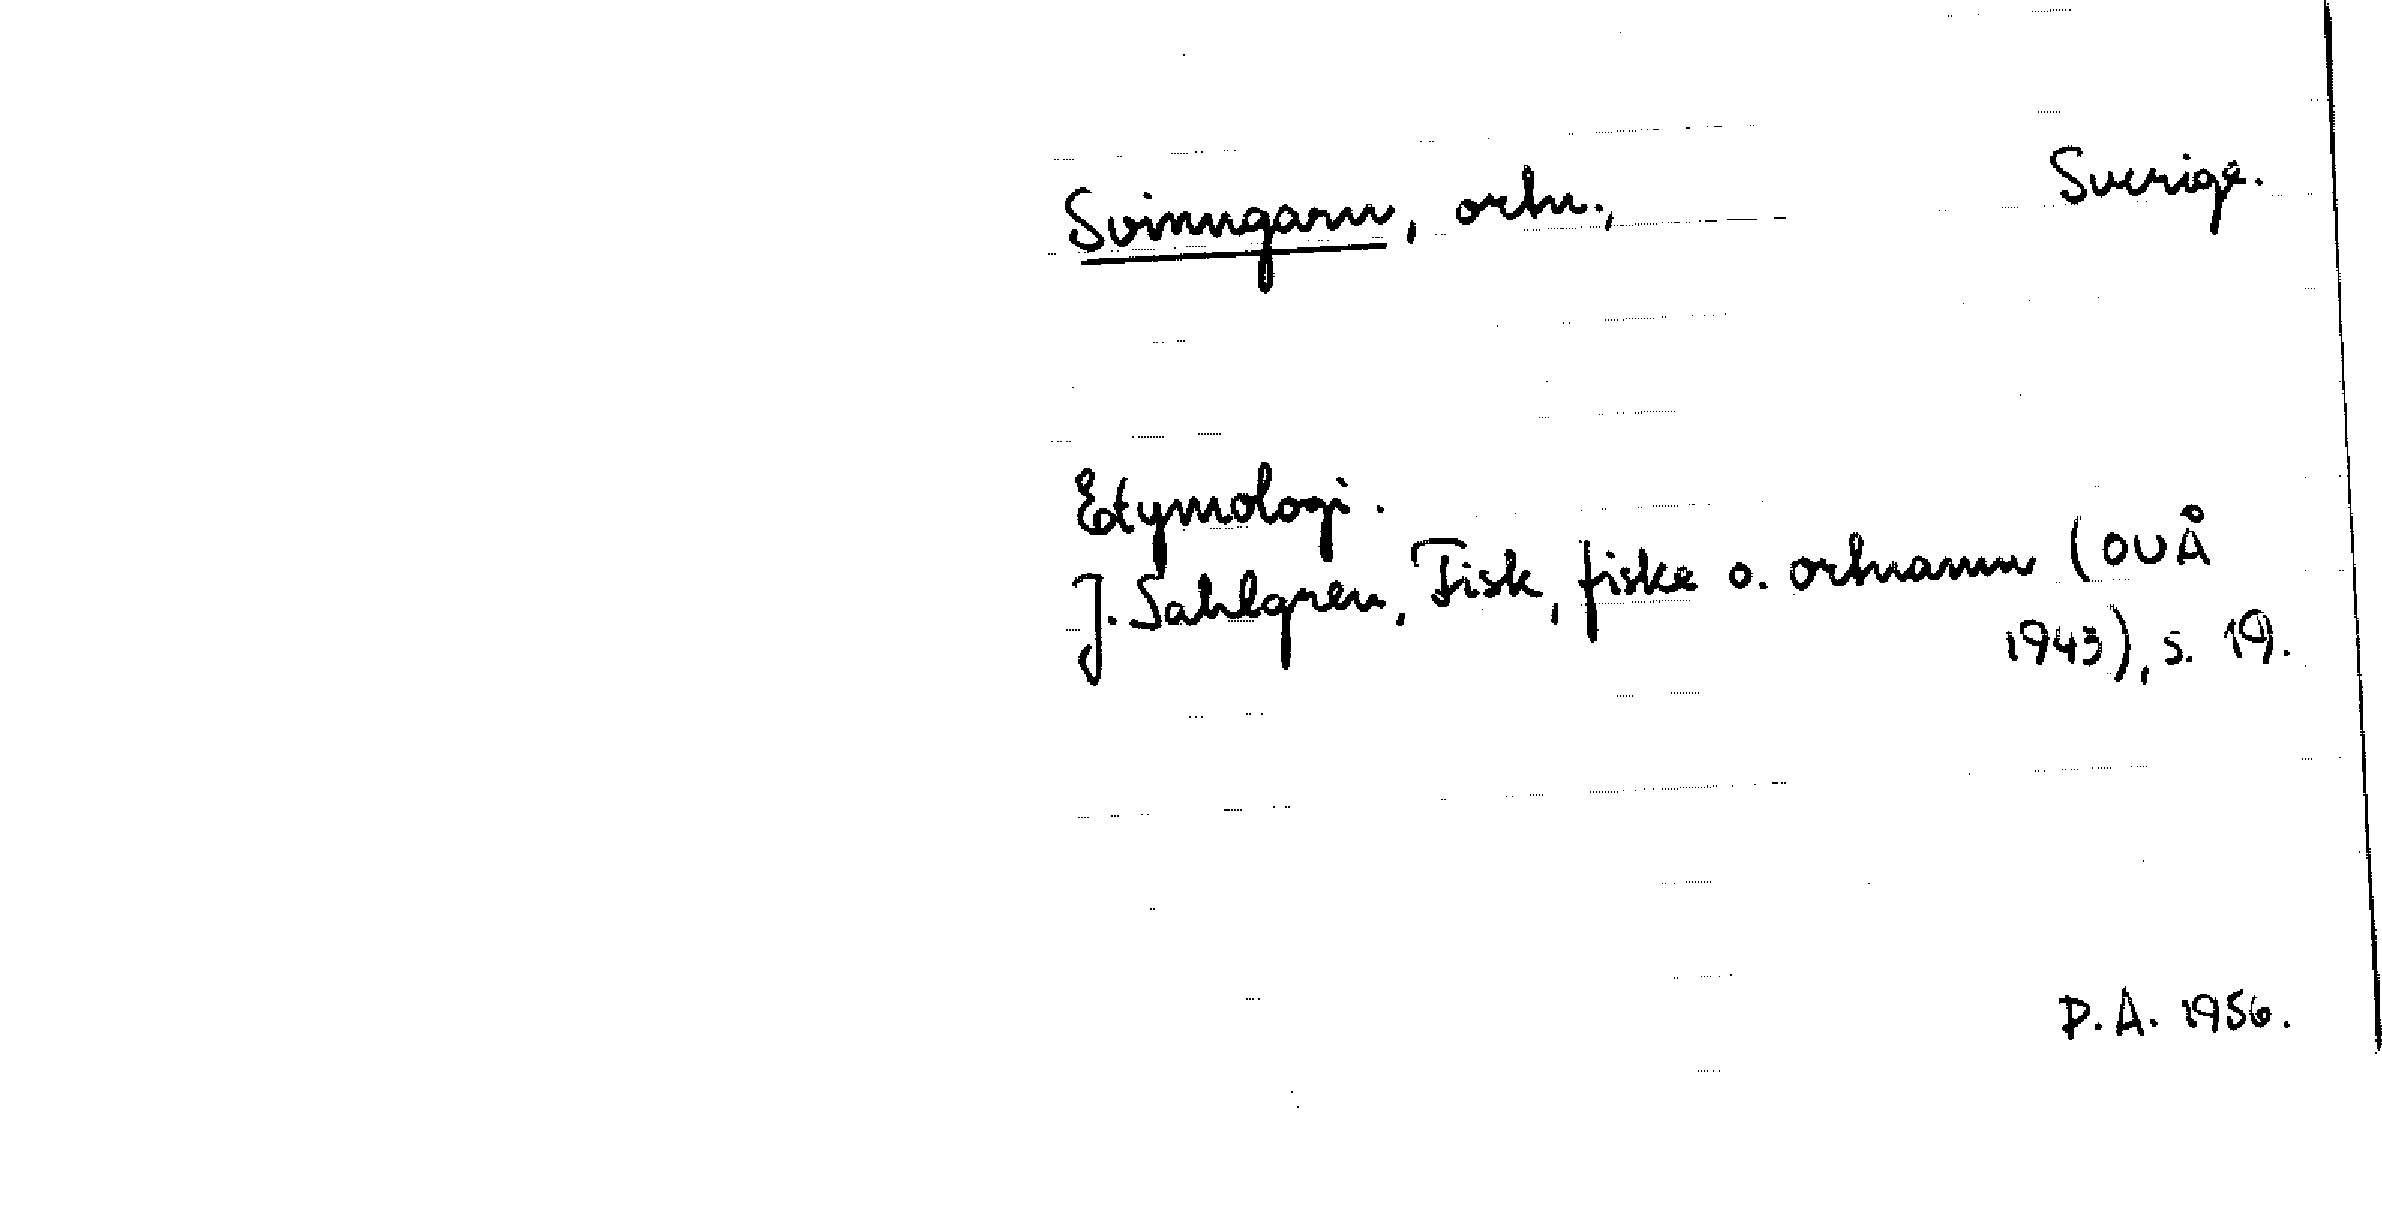 Svinngarn, ortn., Sverige.
Etymologi.
J. Sahlgren, Fisk, fiske o. ortnamn (OUÅ
1943), s. 19.
P.A. 1956.